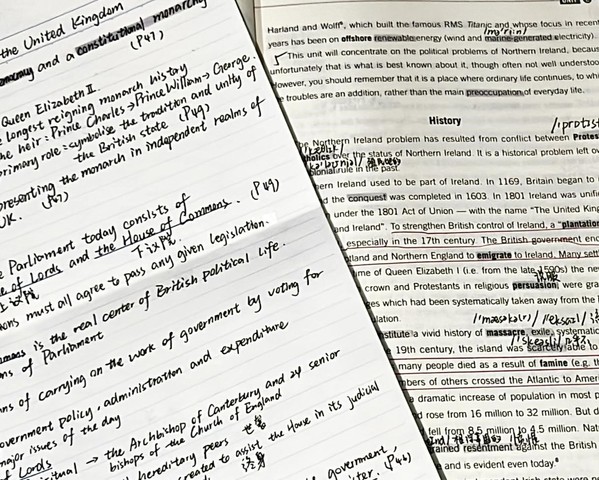 the United Kingdom
and a constitutional monarchy
(P47)
Queen Elizabeth II.
longest reigning monarch history
he heir: Prince Charles→Prince William→George.
primary role: symbolise the tradition and unity of
the British state (P49)
representing the monarch in independent realms of
UK. (P47)
Parliament today consists of
of Lords and the House of Commons. (P49)
下议院
上议院
ons must all agree to pass any given legislation.
mmons is the real center of British political life.
ns of Parliament
ns of carrying on the work of government by voting for
overnment policy, administration and expenditure
major issues of the day
Lords
iritual → the Archbishop of Canterbury and 24 senior
bishops of the Church of England
hereditary peers 世富
created to assist the House in its judicial
终身
government,
(P46)
Harland and Wolff, which built the famous RMS Titanic and whose focus in recent
years has been on offshore renewable energy (wind and marine-generated electricity).
This unit will concentrate on the political problems of Northern Ireland, because
unfortunately that is what is best known about it, though often not well understood
However, you should remember that it is a place where ordinary life continues, to whi
troubles are an addition, rather than the main preoccupation of everyday life.
History
Northern Ireland problem has resulted from conflict between Protes
holics over the status of Northern Ireland. It is a historical problem left ov
colonial rule in the past.
hern Ireland used to be part of Ireland. In 1169, Britain began to i
the conquest was completed in 1603. In 1801 Ireland was unifi
under the 1801 Act of Union — with the name "The United King
and Ireland". To strengthen British control of Ireland, a "plantation
especially in the 17th century. The British government enc
tland and Northern England to emigrate to Ireland. Many settl
me of Queen Elizabeth I (i.e. from the late 1590s) the new
crown and Protestants in religious persuasion, were gra
es which had been systematically taken away from the
lation.
nstitute a vivid history of massacre, exile, systematic
19th century, the island was scarcely able to
many people died as a result of famine (e.g. th
mbers of others crossed the Atlantic to Ameri
dramatic increase of population in most p
rose from 16 million to 32 million. But d
fell from 8.5 million to 4.5 million. Nati
rained resentment against the British
and is evident even today.